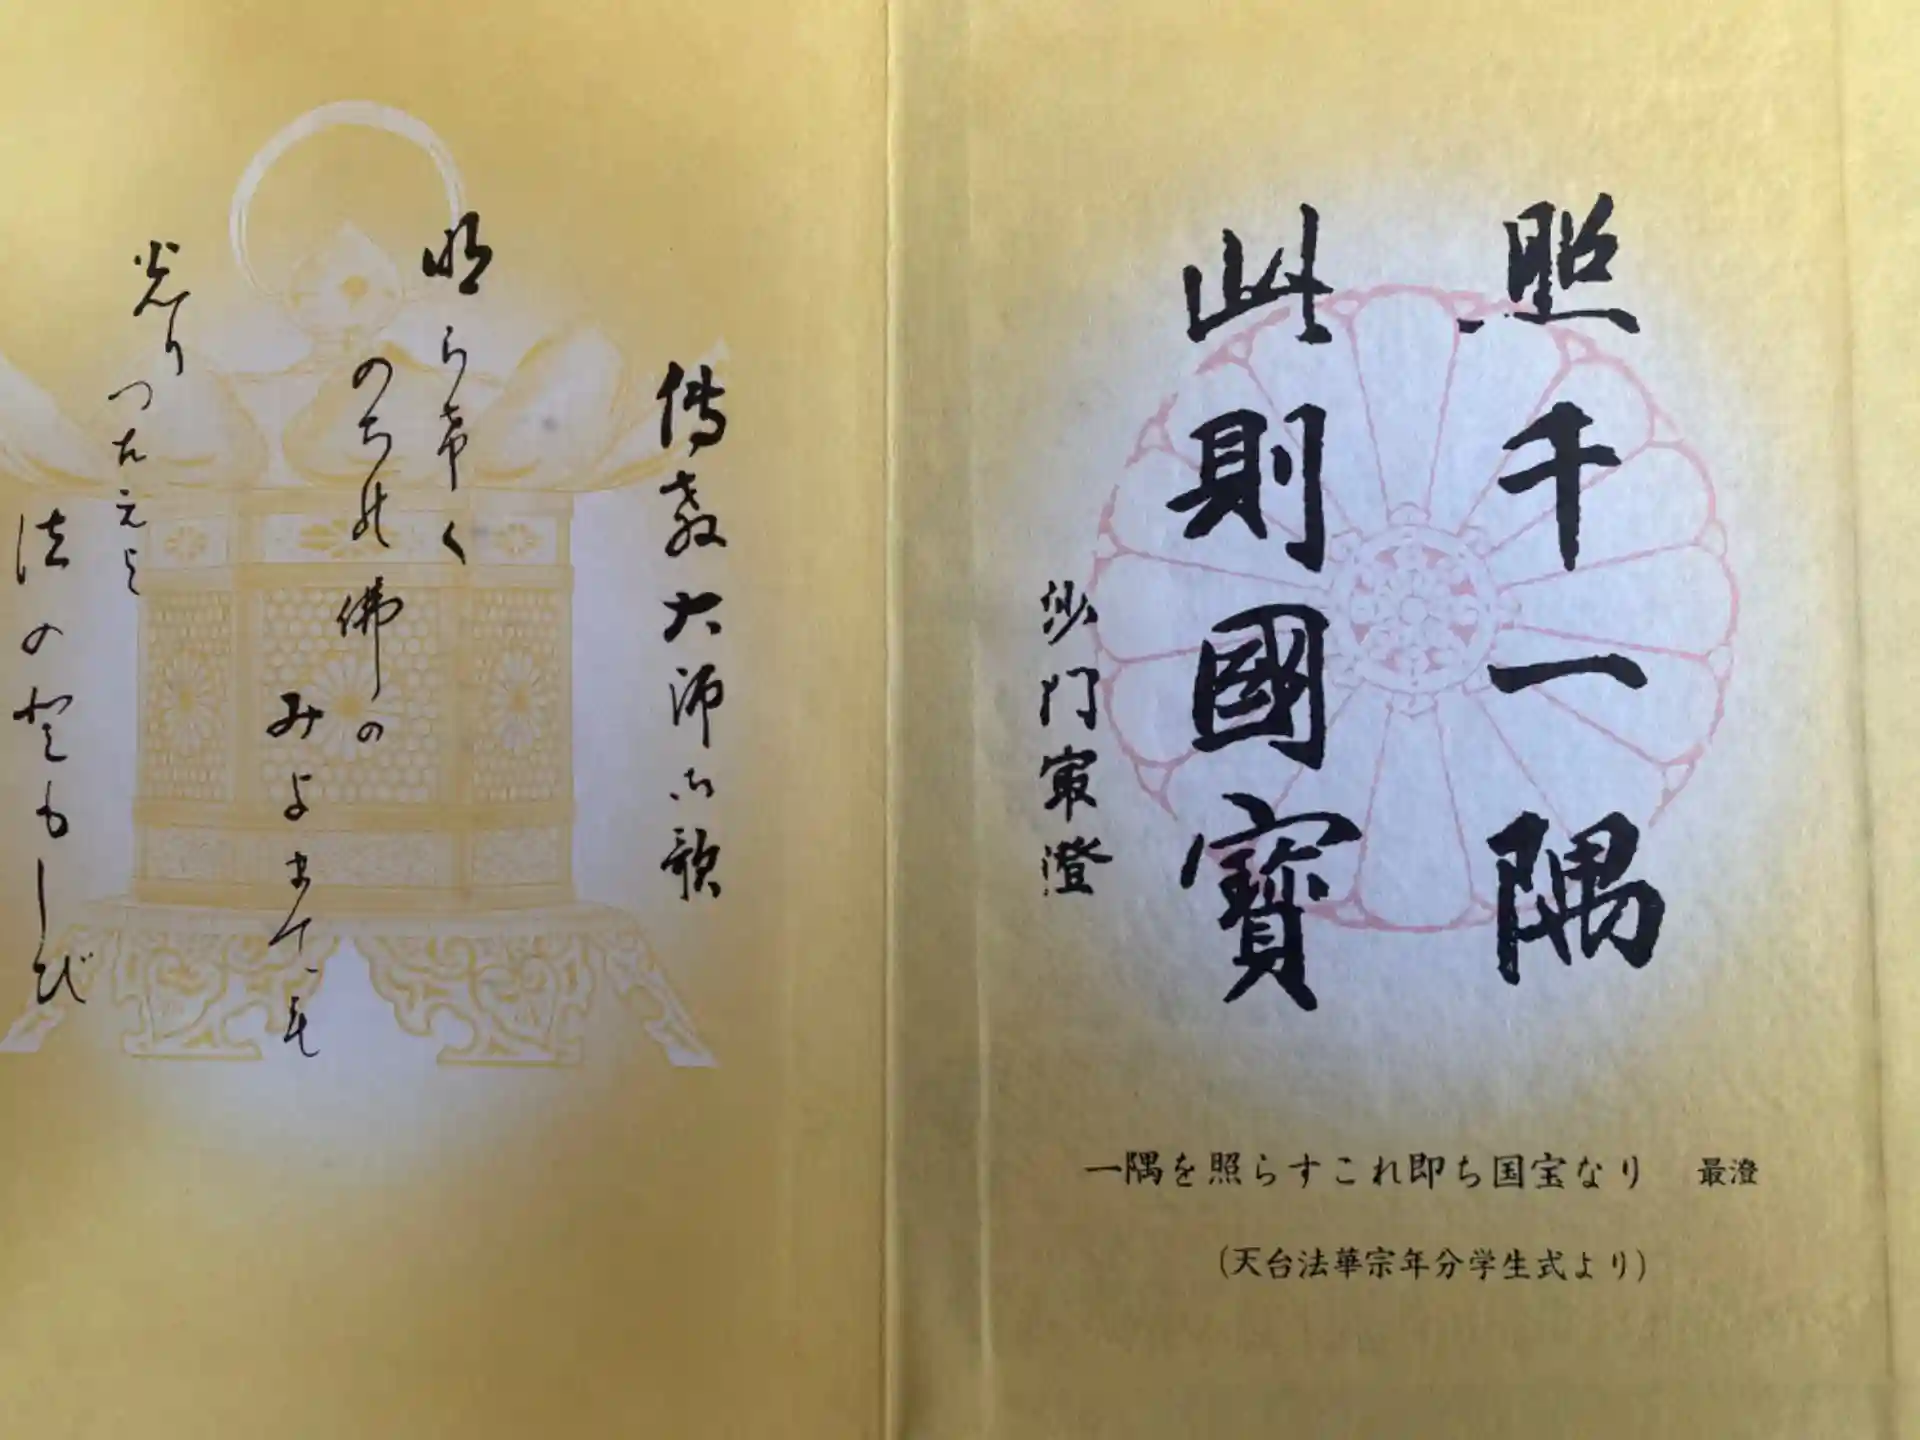 照千一隅
此則國寶
沙門最澄
一隅を照らすこれ即ち国宝なり 最澄
(天台法華宗年分学生式より)
傳教大師御歌
明らけく
のちの佛の
みよまても
光りつたえよ
法のともしび